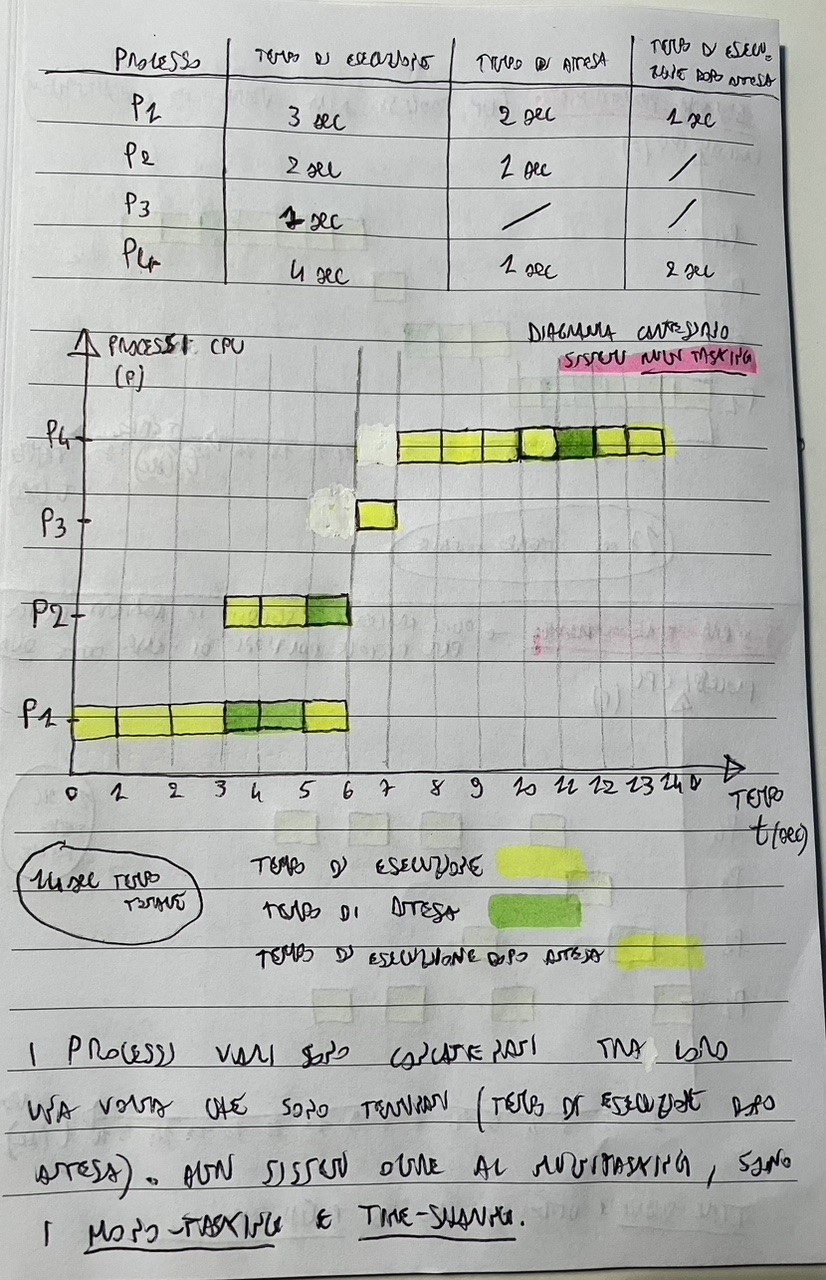 PROCESSO TEMPO DI ESECUZIONE TEMPO DI ATTESA TEMPO DI ESECU-
ZIONE DOPO ATTESA
P1 3 sec 2 sec 1 sec
P2 2 sec 1 sec /
P3 1 sec / /
P4 4 sec 1 sec 2 sec
DIAGRAMMA CARTESIANO
PROCESSI CPU
SISTEMI MULTITASKING
(P)
P4
P3
P2
P1
0 1 2 3 4 5 6 7 8 9 10 11 12 13 14
TEMPO
t(sec)
14 sec TEMPO
TOTALE
TEMPO DI ESECUZIONE
TEMPO DI ATTESA
TEMPO DI ESECUZIONE DOPO ATTESA
I PROCESSI VARI SONO CONCATENATI TRA LORO
UNA VOLTA CHE SONO TERMINATI (TEMPO DI ESECUZIONE DOPO
ATTESA). SISTEMI OLTRE AL MULTITASKING, SONO
I MONO-TASKING E TIME-SHARING.